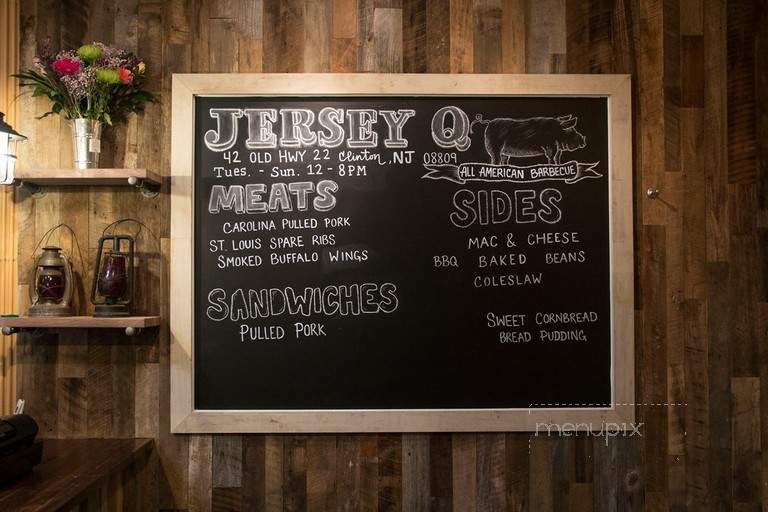 JERSEY Q
42 OLD HWY 22 Clinton, NJ 08809
Tues. - Sun. 12 - 8PM
ALL AMERICAN BARBECUE
MEATS
CAROLINA PULLED PORK
ST. LOUIS SPARE RIBS
SMOKED BUFFALO WINGS
SANDWICHES
PULLED PORK
SIDES
MAC & CHEESE
BBQ BAKED BEANS
COLESLAW
SWEET CORNBREAD
BREAD PUDDING
menupix